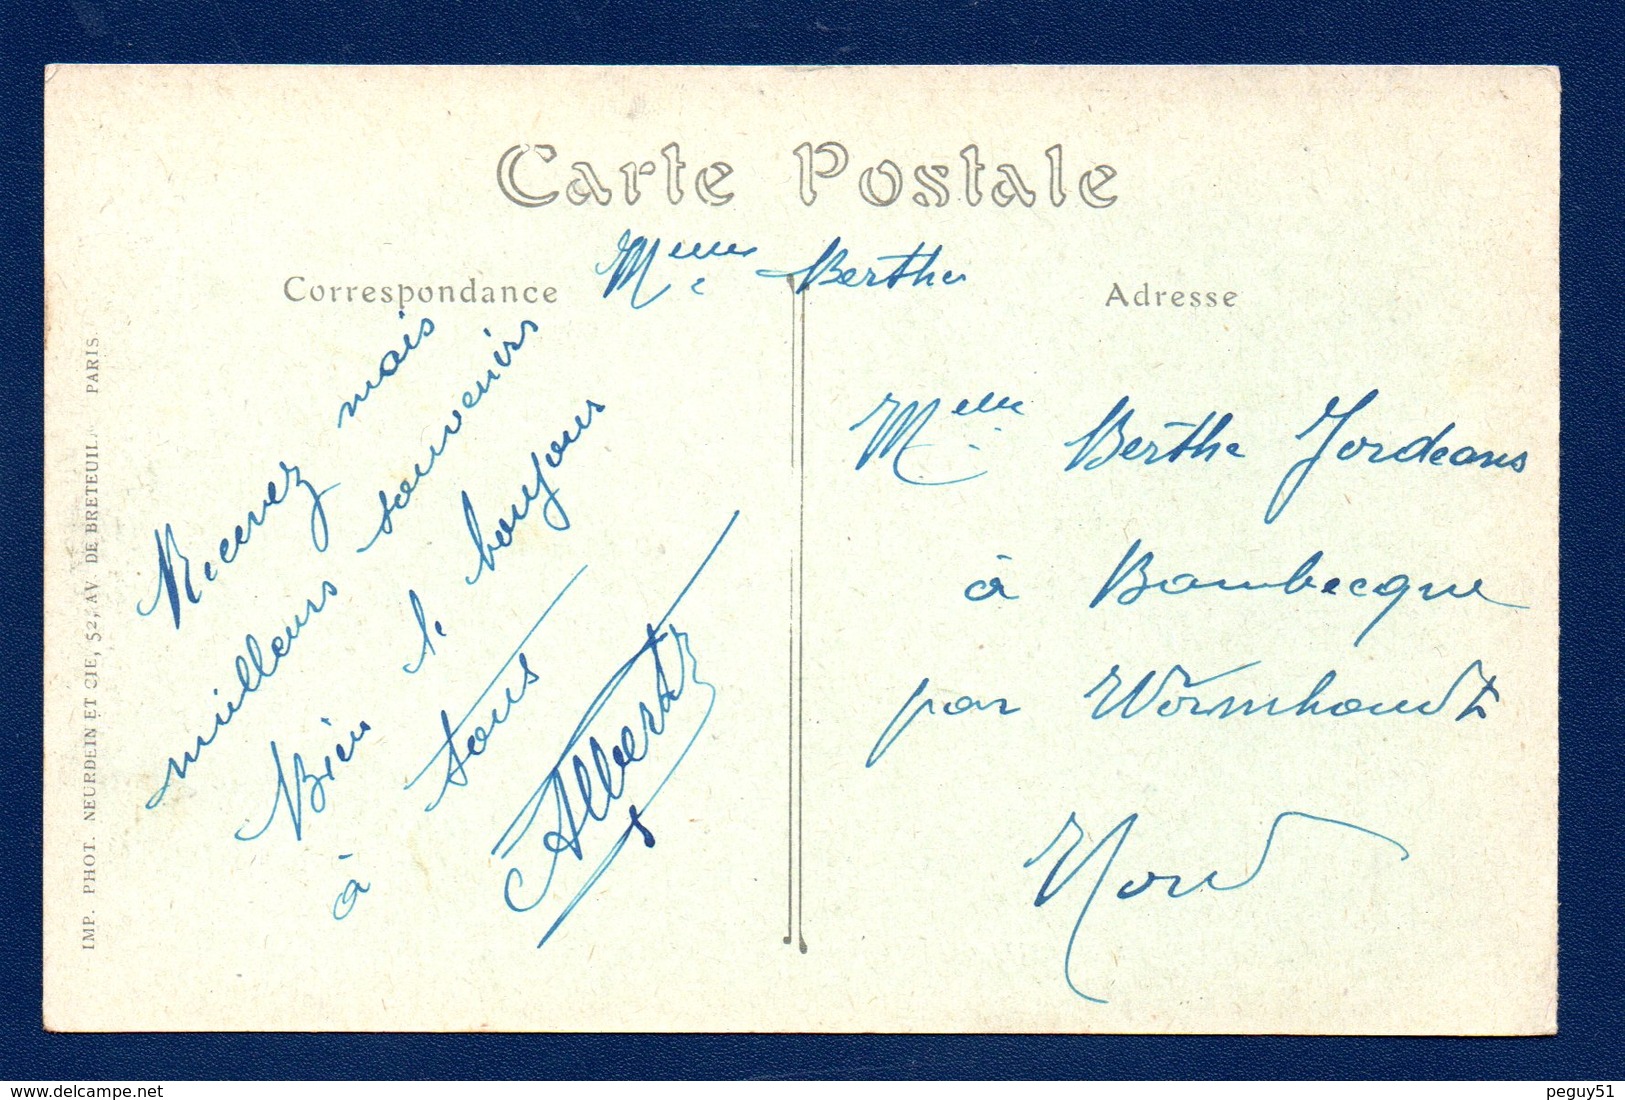 Carte Postale
Correspondance
Melle Berthe
Recevez mais
meilleurs souvenirs
Bien le bonjour
à tous
Albert
Adresse
Melle Berthe Jordeans
à Bambecque
par Wormhoudt
Nord
IMP. PHOT. NEURDEIN ET CIE, 52, AV DE BRETEUIL. PARIS.
delcampe.net
peguy51